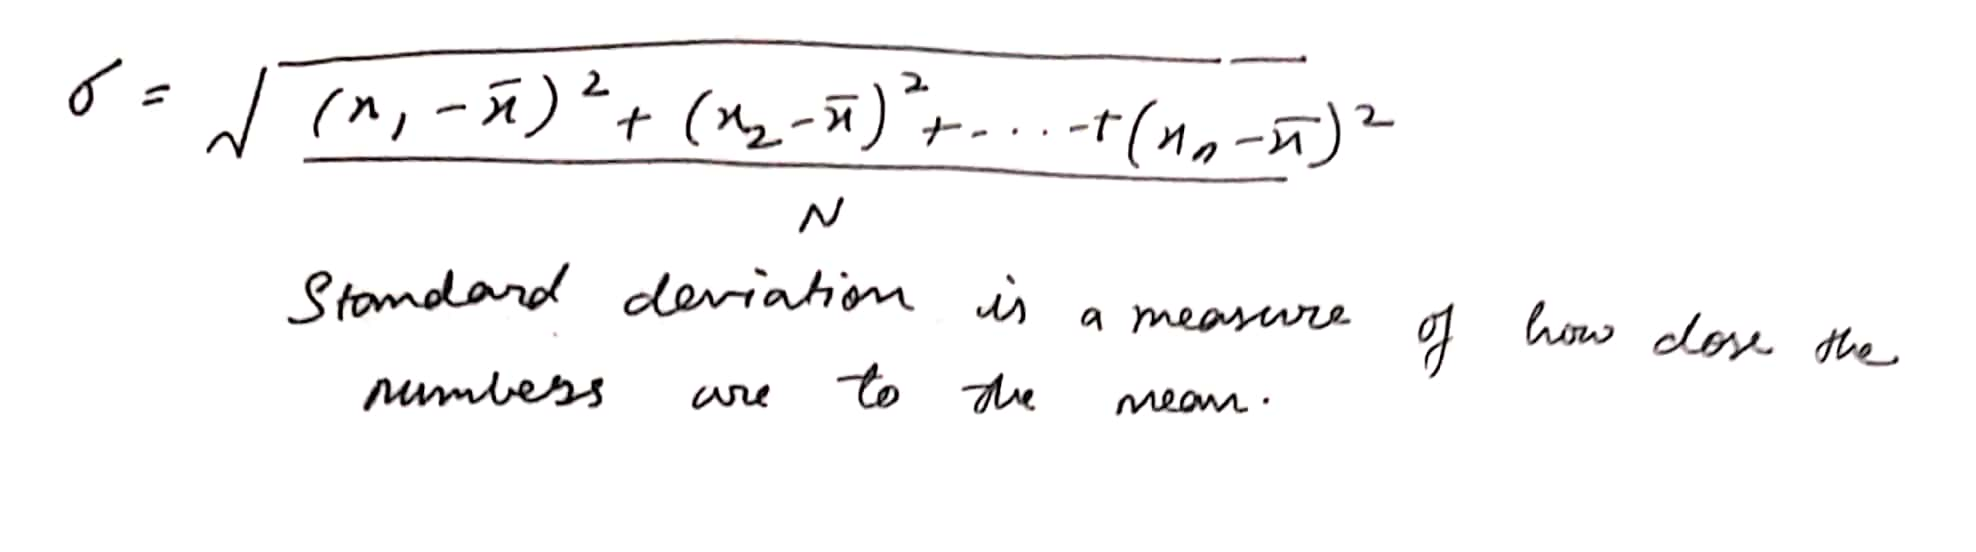 σ = √ (x₁ - x̄)² + (x₂ - x̄)² + - . . . - + (xₙ - x̄)²
N
Standard deviation is a measure of how close the
numbers are to the mean.